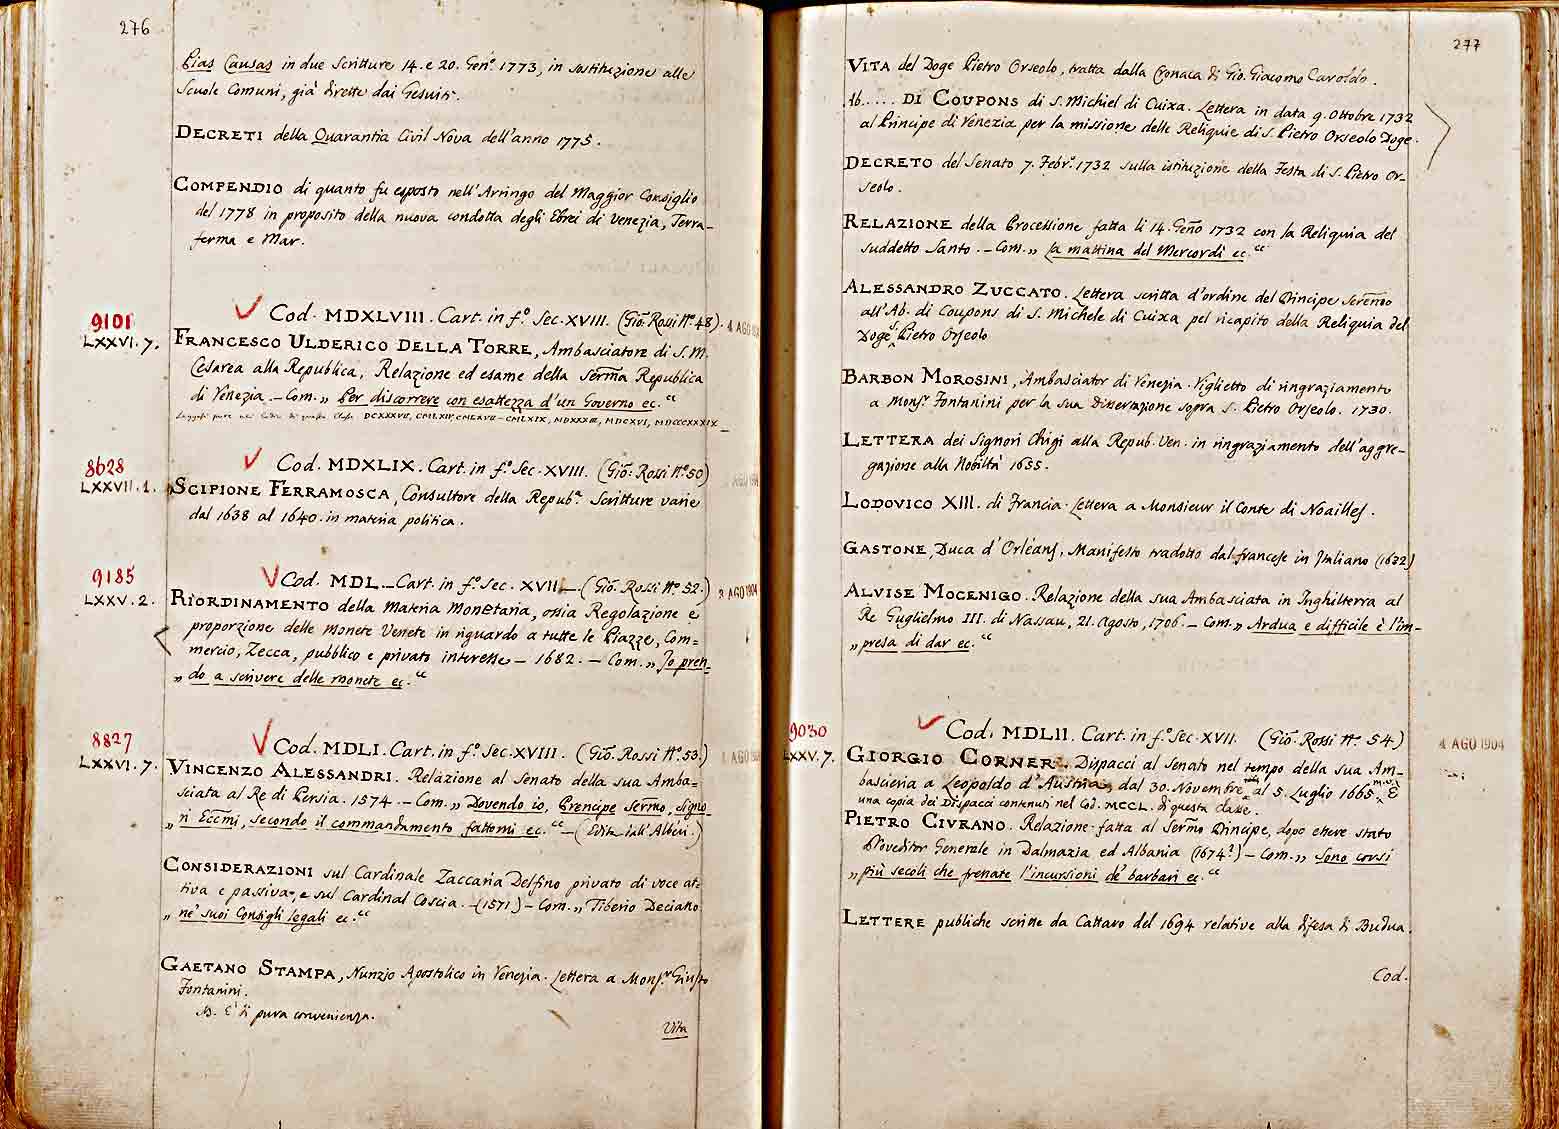 276
Pias Causas in due Scritture 14. e 20. Gen.º 1773, in sostituzione alle
Scuole Comuni, già dirette dai Gesuiti.
DECRETI della Quarantia Civil Nova dell'anno 1775.
COMPENDIO di quanto fu esposto nell'Arringo del Maggior Consiglio
del 1778 in proposito della nuova condotta degli Ebrei di Venezia, Terra-
ferma e Mar.
9101
LXXVI.7.
Cod. MDXLVIII. Cart. in f.º Sec. XVIII. (Gio: Rossi Nº 48).
4 AGO
FRANCESCO ULDERICO DELLA TORRE, Ambasciatore di S. M.
Cesarea alla Republica, Relazione ed esame della Serm̃a Republica
di Venezia. - Com. „ Per discorrere con esattezza d'un Governo ec. “
DCXXXVII, CMLXII, CMLXVII - CMLXIX, MDXXXIII, MDCXVI, MDCCCXXXIX
8628
LXXVII.1.
Cod. MDXLIX. Cart. in f.º Sec. XVIII. (Gio: Rossi Nº 50)
SCIPIONE FERRAMOSCA, Consultore della Repub.ª Scritture varie
dal 1638 al 1640. in materia politica.
9185
LXXV.2.
Cod. MDL. Cart. in f.º Sec. XVII. (Gio. Rossi Nº. 52.)
2 AGO 1904
RIORDINAMENTO della Materia Monetaria, ossia Regolazione e
proporzione delle Monete Venete in riguardo a tutte le Piazze, Com=
mercio, Zecca, pubblico e privato interesse - 1682. - Com. „ Io pren-
„ do a scrivere delle monete ec. “
8827
LXXVI.7.
Cod. MDLI. Cart. in f.º Sec. XVIII. (Gio. Rossi Nº. 53.)
AGO
VINCENZO ALESSANDRI. Relazione al Senato della sua Amba=
sciata al Re di Persia. 1574. - Com. „ Dovendo io, Prencipe Sermo, Signo-
„ ri Eccm̃i, secondo il commandamento fattomi ec. “ - (Edita dall'Albèri.)
CONSIDERAZIONI sul Cardinale Zaccaria Delfino privato di voce at=
tiva e passiva, e sul Cardinal Coscia. - (1571) - Com. „ Tiberio Deciano
„ ne' suoi Consigli legali ec. “
GAETANO STAMPA, Nunzio Apostolico in Venezia. Lettera a Mons.r Giusto
Fontanini.
NB. È di pura convenienza.
Vita
277
VITA del Doge Pietro Orseolo, tratta dalla Cronaca di Gio. Giacomo Caroldo.
Ab..... DI COUPONS di S. Michiel di Cuixa. Lettera in data 9. Ottobre 1732
al Principe di Venezia per la missione delle Reliquie di S. Pietro Orseolo Doge.
DECRETO del Senato 7. Febr.º 1732 sulla istituzione della Festa di S. Pietro Or-
seolo.
RELAZIONE della Processione fatta li 14. Gen̄o 1732 con la Reliquia del
suddetto Santo. - Com. „ La mattina del Mercordì ec. “
ALESSANDRO ZUCCATO. Lettera scritta d'ordine del Principe Seren̄o
all'Ab. di Coupons di S. Michele di Cuixa pel ricapito della Reliquia del
Doge S. Pietro Orseolo
BARBON MOROSINI, Ambasciator di Venezia. Viglietto di ringraziamento
a Mons.r Fontanini per la sua Dissertazione sopra S. Pietro Orseolo. 1730.
LETTERA dei Signori Chigi alla Repub. Ven. in ringraziamento dell'aggre-
gazione alla Nobiltà 1655.
LODOVICO XIII. di Francia. Lettera a Monsieur il Conte di Noailles.
GASTONE, Duca d'Orléans, Manifesto tradotto dal francese in Italiano (1632)
ALVISE MOCENIGO. Relazione della sua Ambasciata in Inghilterra al
Re Guglielmo III. di Nassau, 21. Agosto, 1706. - Com. „ Ardua e difficile è l'im-
„ presa di dar ec. “
9030
LXXV.7.
Cod. MDLII. Cart. in f.º Sec. XVII. (Gio. Rossi Nº. 54)
4 AGO 1904
GIORGIO CORNER. Dispacci al Senato nel tempo della sua Am-
basciería a Leopoldo d'Austria, dal 30. Novembre al 5. Luglio 1665. È
una copia dei Dispacci contenuti nel Cod. MCCL. di questa classe.
PIETRO CIVRANO. Relazione fatta al Serm̃o Principe, dopo essere stato
Proveditor Generale in Dalmazia ed Albania (1674?) - Com. „ Sono corsi
„ più secoli che frenate l'incursioni de' barbari ec. “
LETTERE publiche scritte da Cattaro del 1694 relative alla difesa di Budua.
Cod.